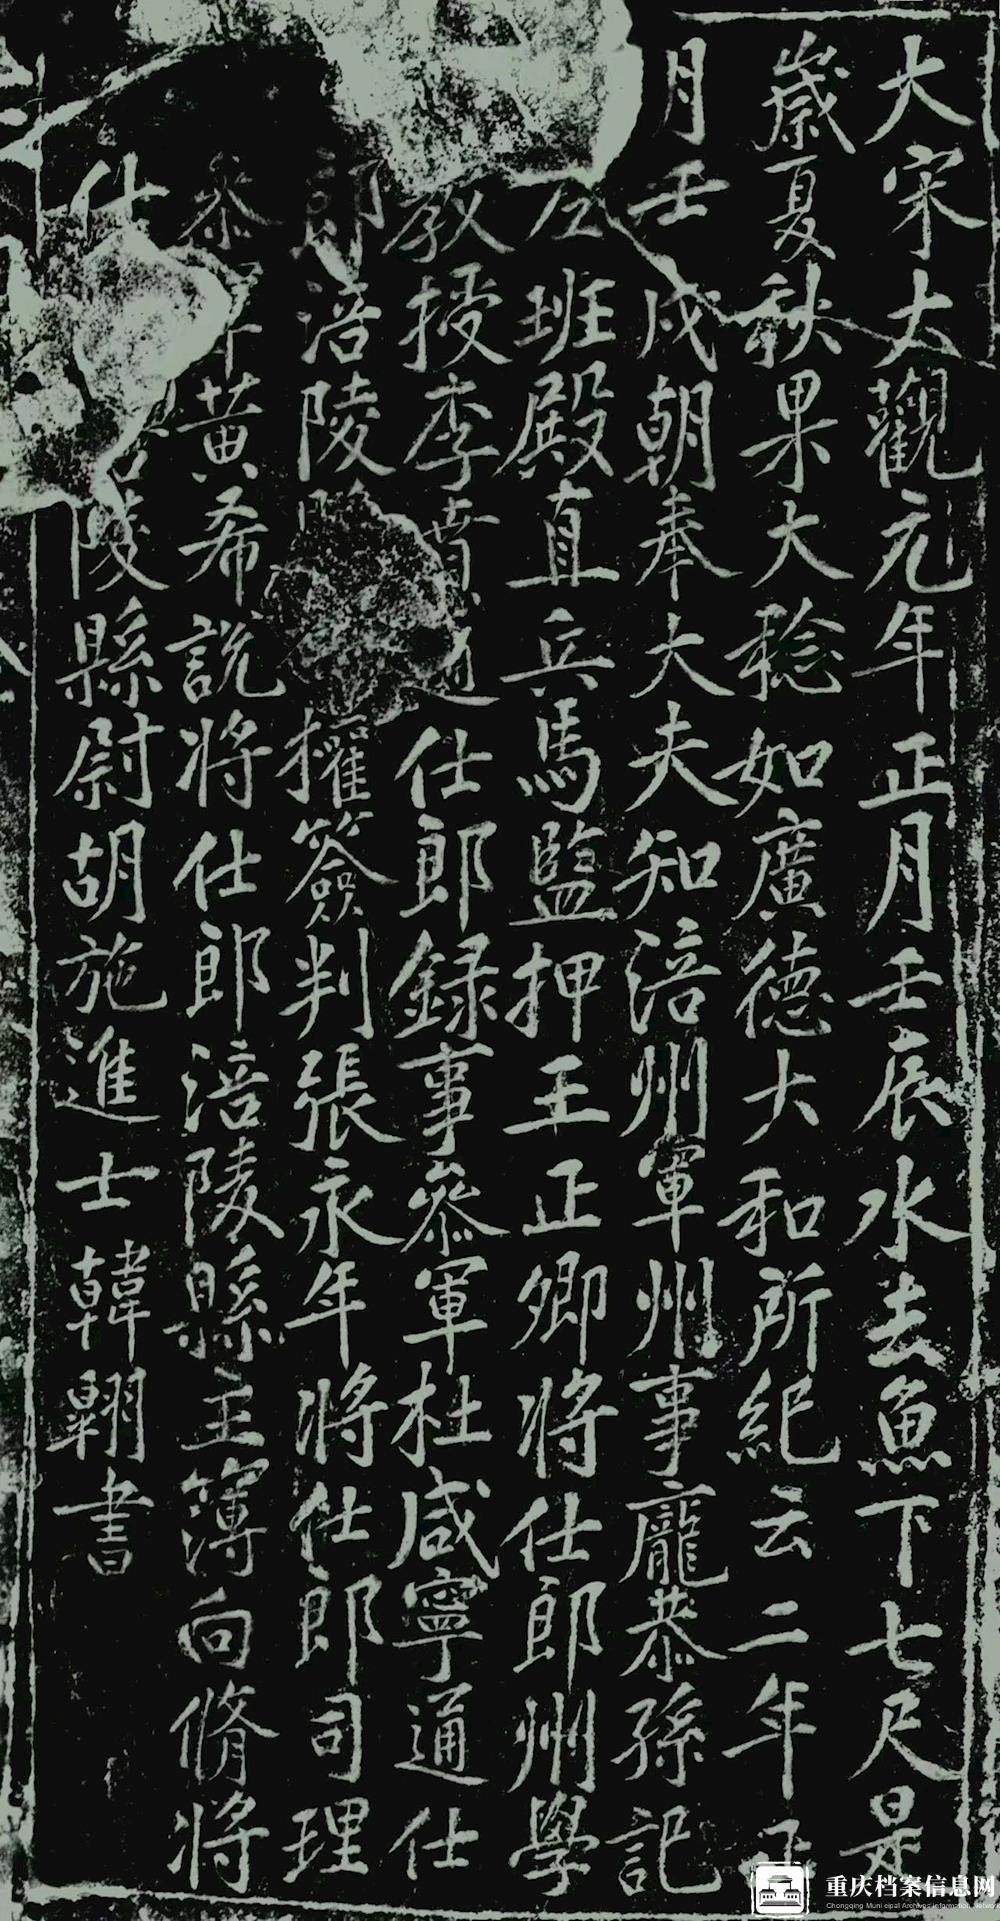 大宋大觀元年正月壬辰水去魚下七尺是
歲夏秋果大稔如廣德大和所紀云二年正
月壬戌朝奉大夫知涪州軍州事龐恭孫記
左班殿直兵馬監押王正卿將仕郎州學
教授李賁通仕郎錄事參軍杜咸寧通仕
郎涪陵攉簽判張永年將仕郎司理
叅軍黃希說將仕郎涪陵縣主簿向脩將
仕陵縣尉胡施進士韓翱書
重庆档案信息网
Chongqing Municipal Archives Information Network